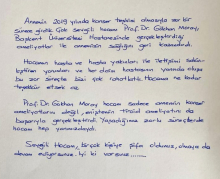 Annemin 2019 yılında kanser teşhisi almasıyla zor bir
sürece girdik. Çok sevgili hocam Prof. Dr. Gökhan Moray'ı
Başkent Üniversitesi Hastanesinde gerçekleştirdiği
ameliyatlar ile annemin sağlığını geri kazandırdı.
Hocamın hasta ve hasta yakınları ile iletişimi sakin-
leştiren yanaları ve her daim hastasının yanında oluşu
bu zor süreçte bizi çok rahatlattı. Hocama ne kadar
teşekkür etsek az.
Prof. Dr. Gökhan Moray hocam sadece annemin kanser
ameliyatlarını değil, eniştemin tiroid ameliyatını da
başarıyla gerçekleştirdi. Yaşadığımız zorlu süreçlerde
hocam hep yanımızdaydı.
Sevgili Hocam, birçok kişiye şifa oldunuz, olmaya da
devam ediyorsunuz. İyi ki varsınız......